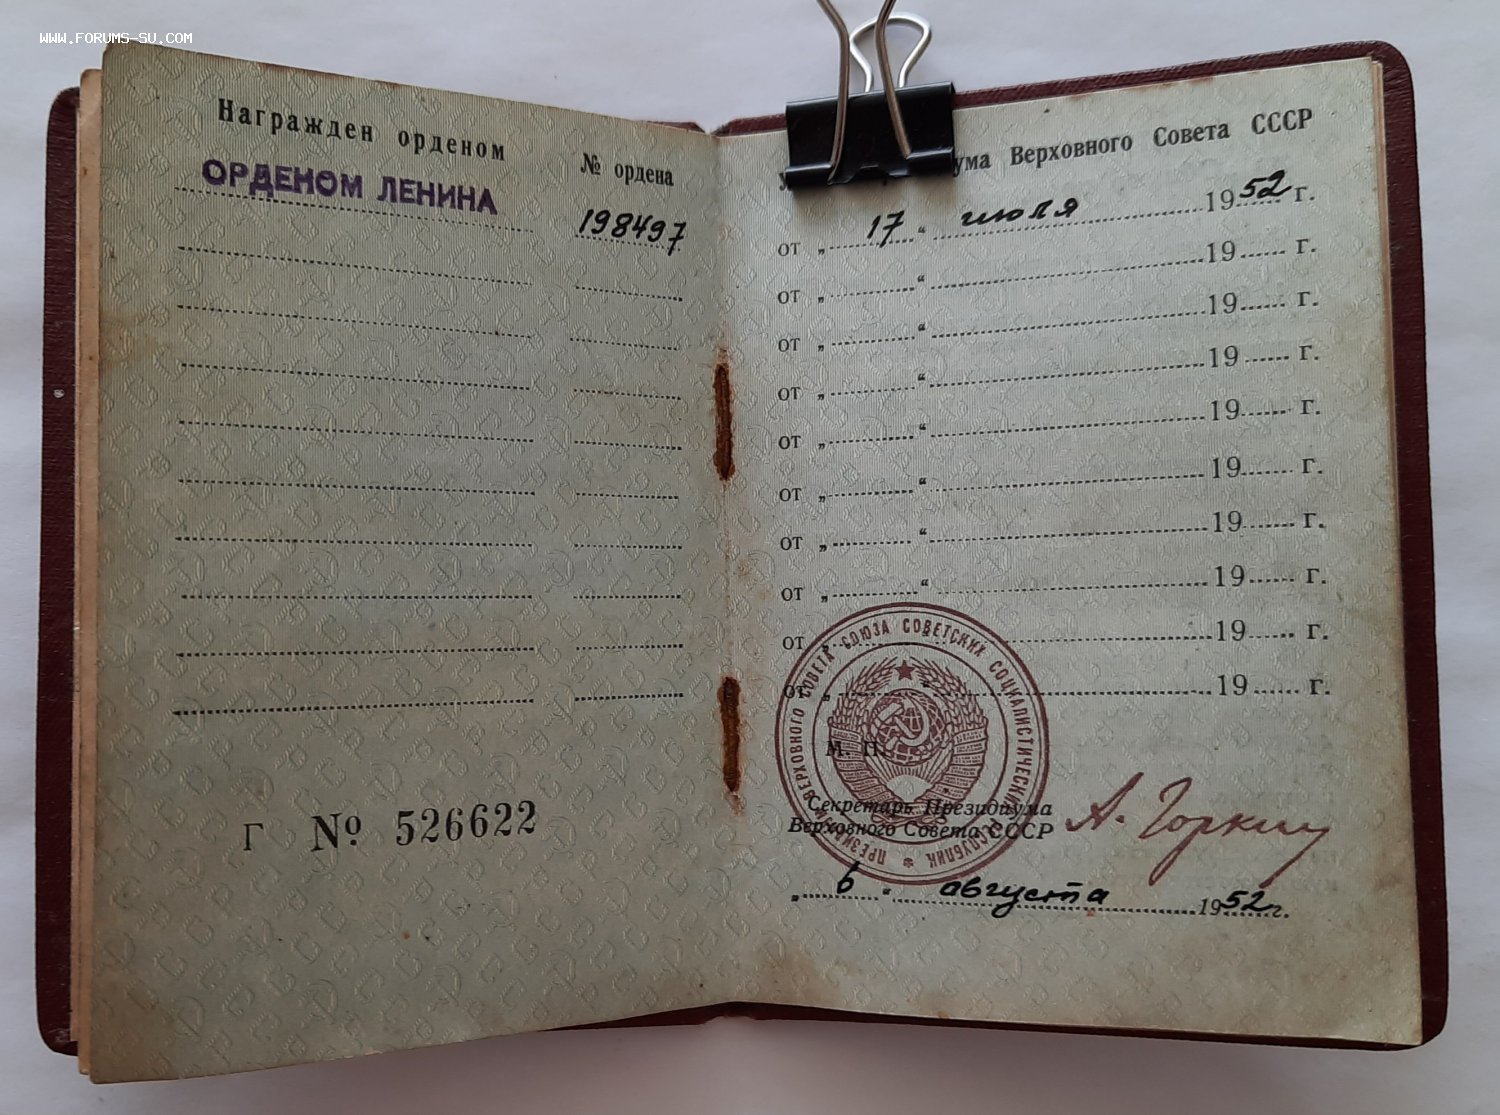 WWW.FORUMS-SU.COM
Награжден орденом
№ ордена
ОРДЕНОМ ЛЕНИНА
198497
Г № 526622
ума Верховного Совета СССР
от „ 17 “ июля 1952 г.
от „ “ 19 г.
от „ “ 19 г.
от „ “ 19 г.
от „ “ 19 г.
от „ “ 19 г.
от „ “ 19 г.
от „ “ 19 г.
от „ “ 19 г.
от „ “ 19 г.
ПРЕЗИДИУМ ВЕРХОВНОГО СОВЕТА СОЮЗА СОВЕТСКИХ СОЦИАЛИСТИЧЕСКИХ РЕСПУБЛИК
М. П.
Секретарь Президиума
Верховного Совета СССР
А. Горкин
„ 6 “ августа 1952 г.